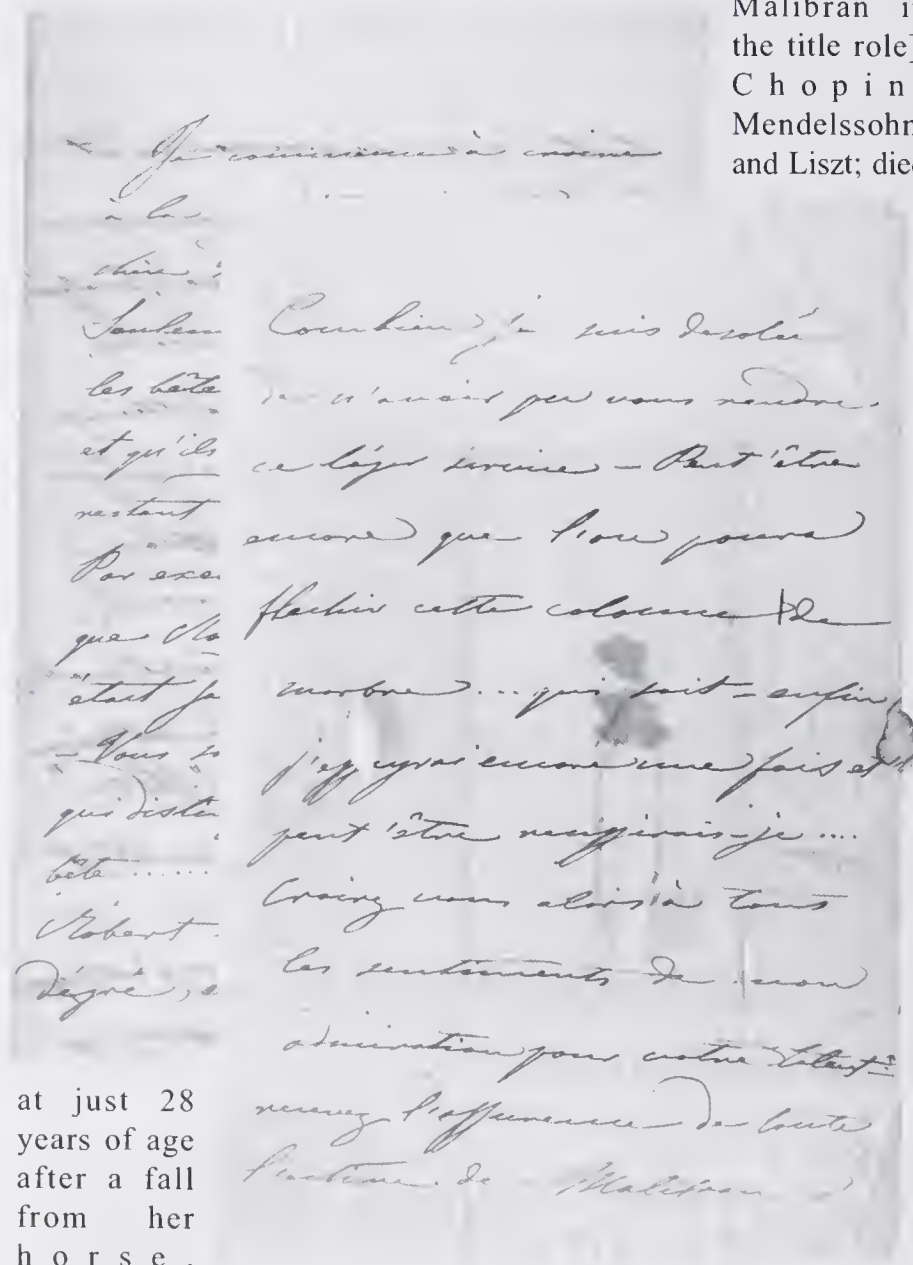 Malibran i
the title role]
Chopin
Mendelssohn
and Liszt; died
Je commence à croire
à la
chère
les bête
et qu'ils
restant
Par exe
que Mo
était fa
- Vous s
qui disti
bête ......
Robert
dégré, e
Combien je suis desolée
de n'avoir pu vous rendre
ce léger service - Peut'être
encore que l'on pourra
flechir cette colonne de
marbre ... qui sait - enfin
j'essayrai encore une fois et
peut'être reussirais-je ....
Croirez vous alors à tous
les sentiments de mon
admiration pour votre talent
recevez l'assurance de toute
l'estime de Malibran
at just 28
years of age
after a fall
from her
horse.